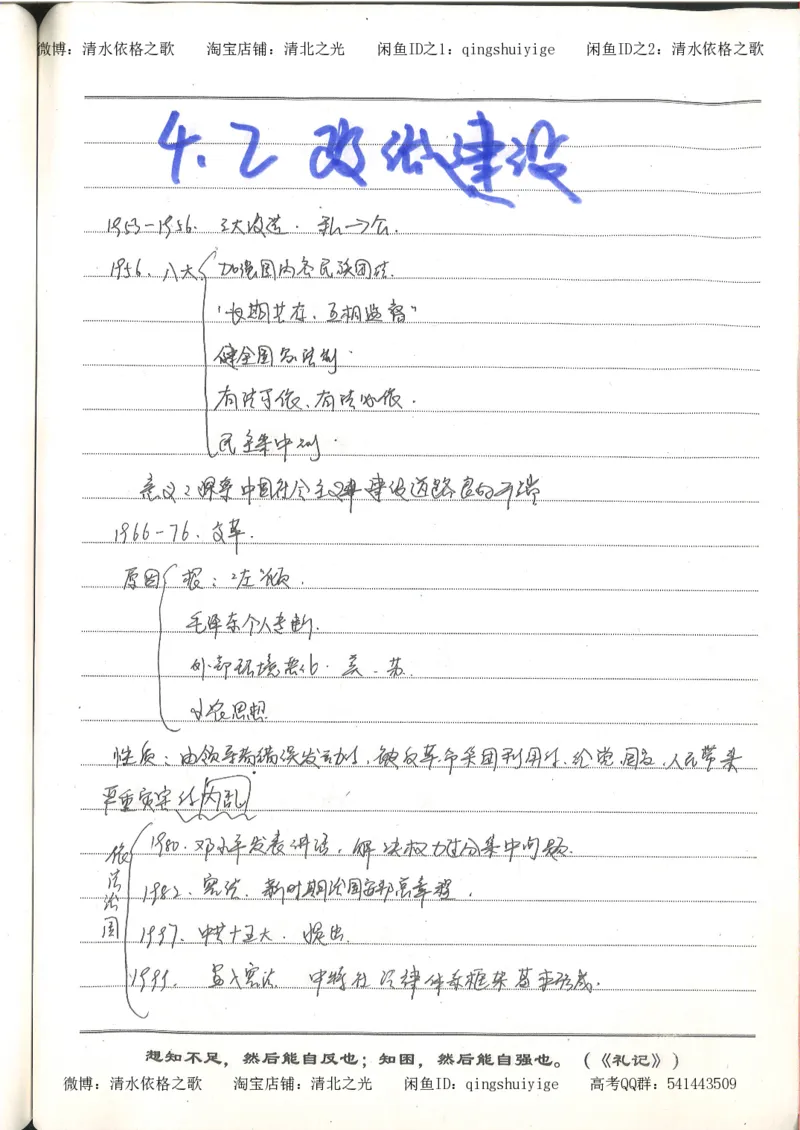 微博：清水依格之歌 淘宝店铺：清北之光 闲鱼ID之1：qingshuiyige 闲鱼ID之2：清水依格之歌
4.2 政治建设
1953-1956. 三大改造. 私→公.
1956. 八大 加强国内各民族团结.
"长期共存、互相监督"
健全国家法制.
有法可依、有法必依.
民主集中制.
意义：探索中国社会主义建设道路良的开端
1966-76. 文革.
原因 根："左"倾.
毛泽东个人专断.
外部环境恶化. 美、苏.
小农思想
性质：由领导搞错误发动, 被反革命集团利用, 给党、国家、人民带来
严重灾害的内乱
依法治国
1980. 邓小平发表讲话, 解决权力过分集中问题.
1982. 宪法. 新时期治国安邦总章程.
1997. 中共十五大. 提出.
1999. 写入宪法 中特社法律体系框架基本形成.
想知不足，然后能自反也；知困，然后能自强也。（《礼记》）
微博：清水依格之歌 淘宝店铺：清北之光 闲鱼ID：qingshuiyige 高考QQ群：541443509